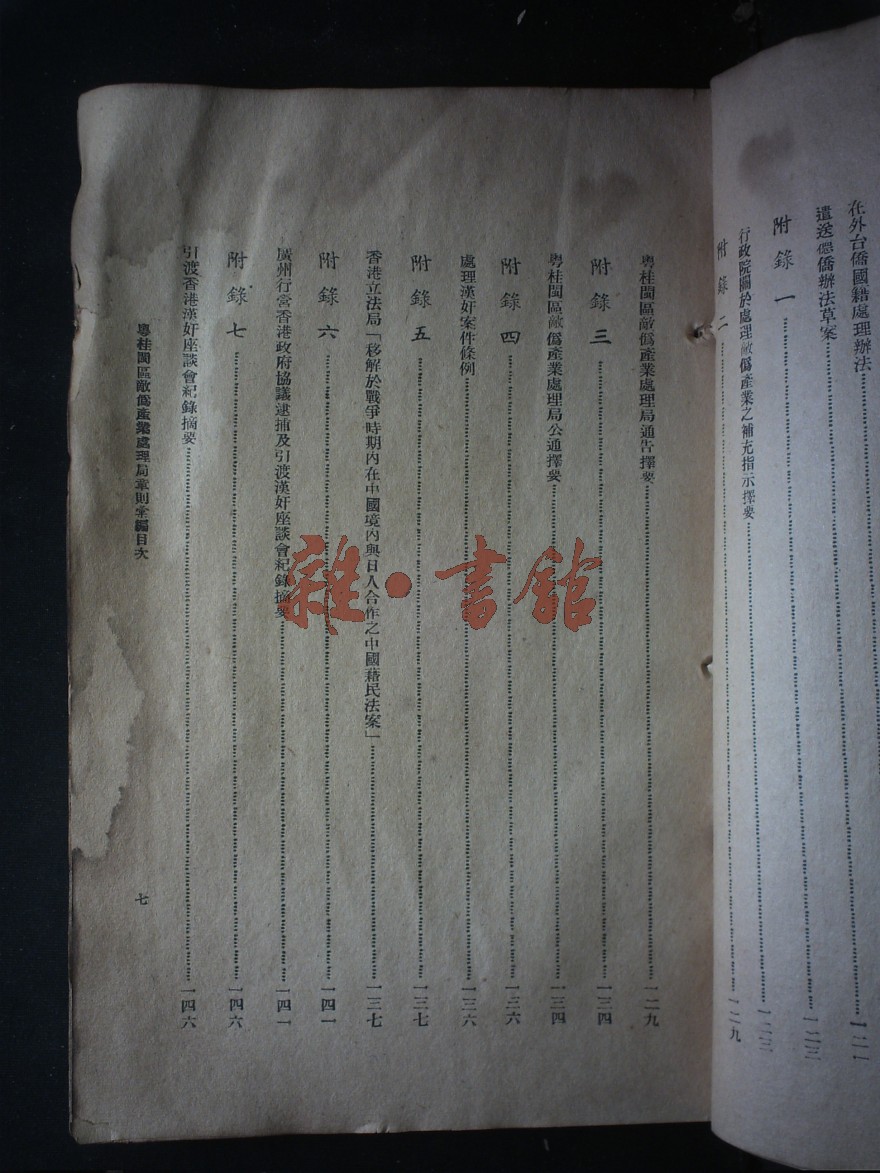 在外台僑國籍處理辦法……一二一
遣送僑僑辦法草案……一二三
附錄一……一二三
行政院關於處理敵僞產業之補充指示擇要
附錄二……一二九
粵桂閩區敵僞產業處理局通告擇要……一二九
附錄三……一三四
粵桂閩區敵僞產業處理局公通擇要……一三四
附錄四……一三六
處理漢奸案件條例……一三六
附錄五……一三七
香港立法局「移解於戰爭時期內在中國境內與日人合作之中國藉民法案」……一三七
附錄六……一四一
廣州行營香港政府協議逮捕及引渡漢奸座談會紀錄摘要……一四一
附錄七……一四六
引渡香港漢奸座談會紀錄摘要……一四六
粵桂閩區敵僞產業處理局章則彙編目次
七
雜·書館